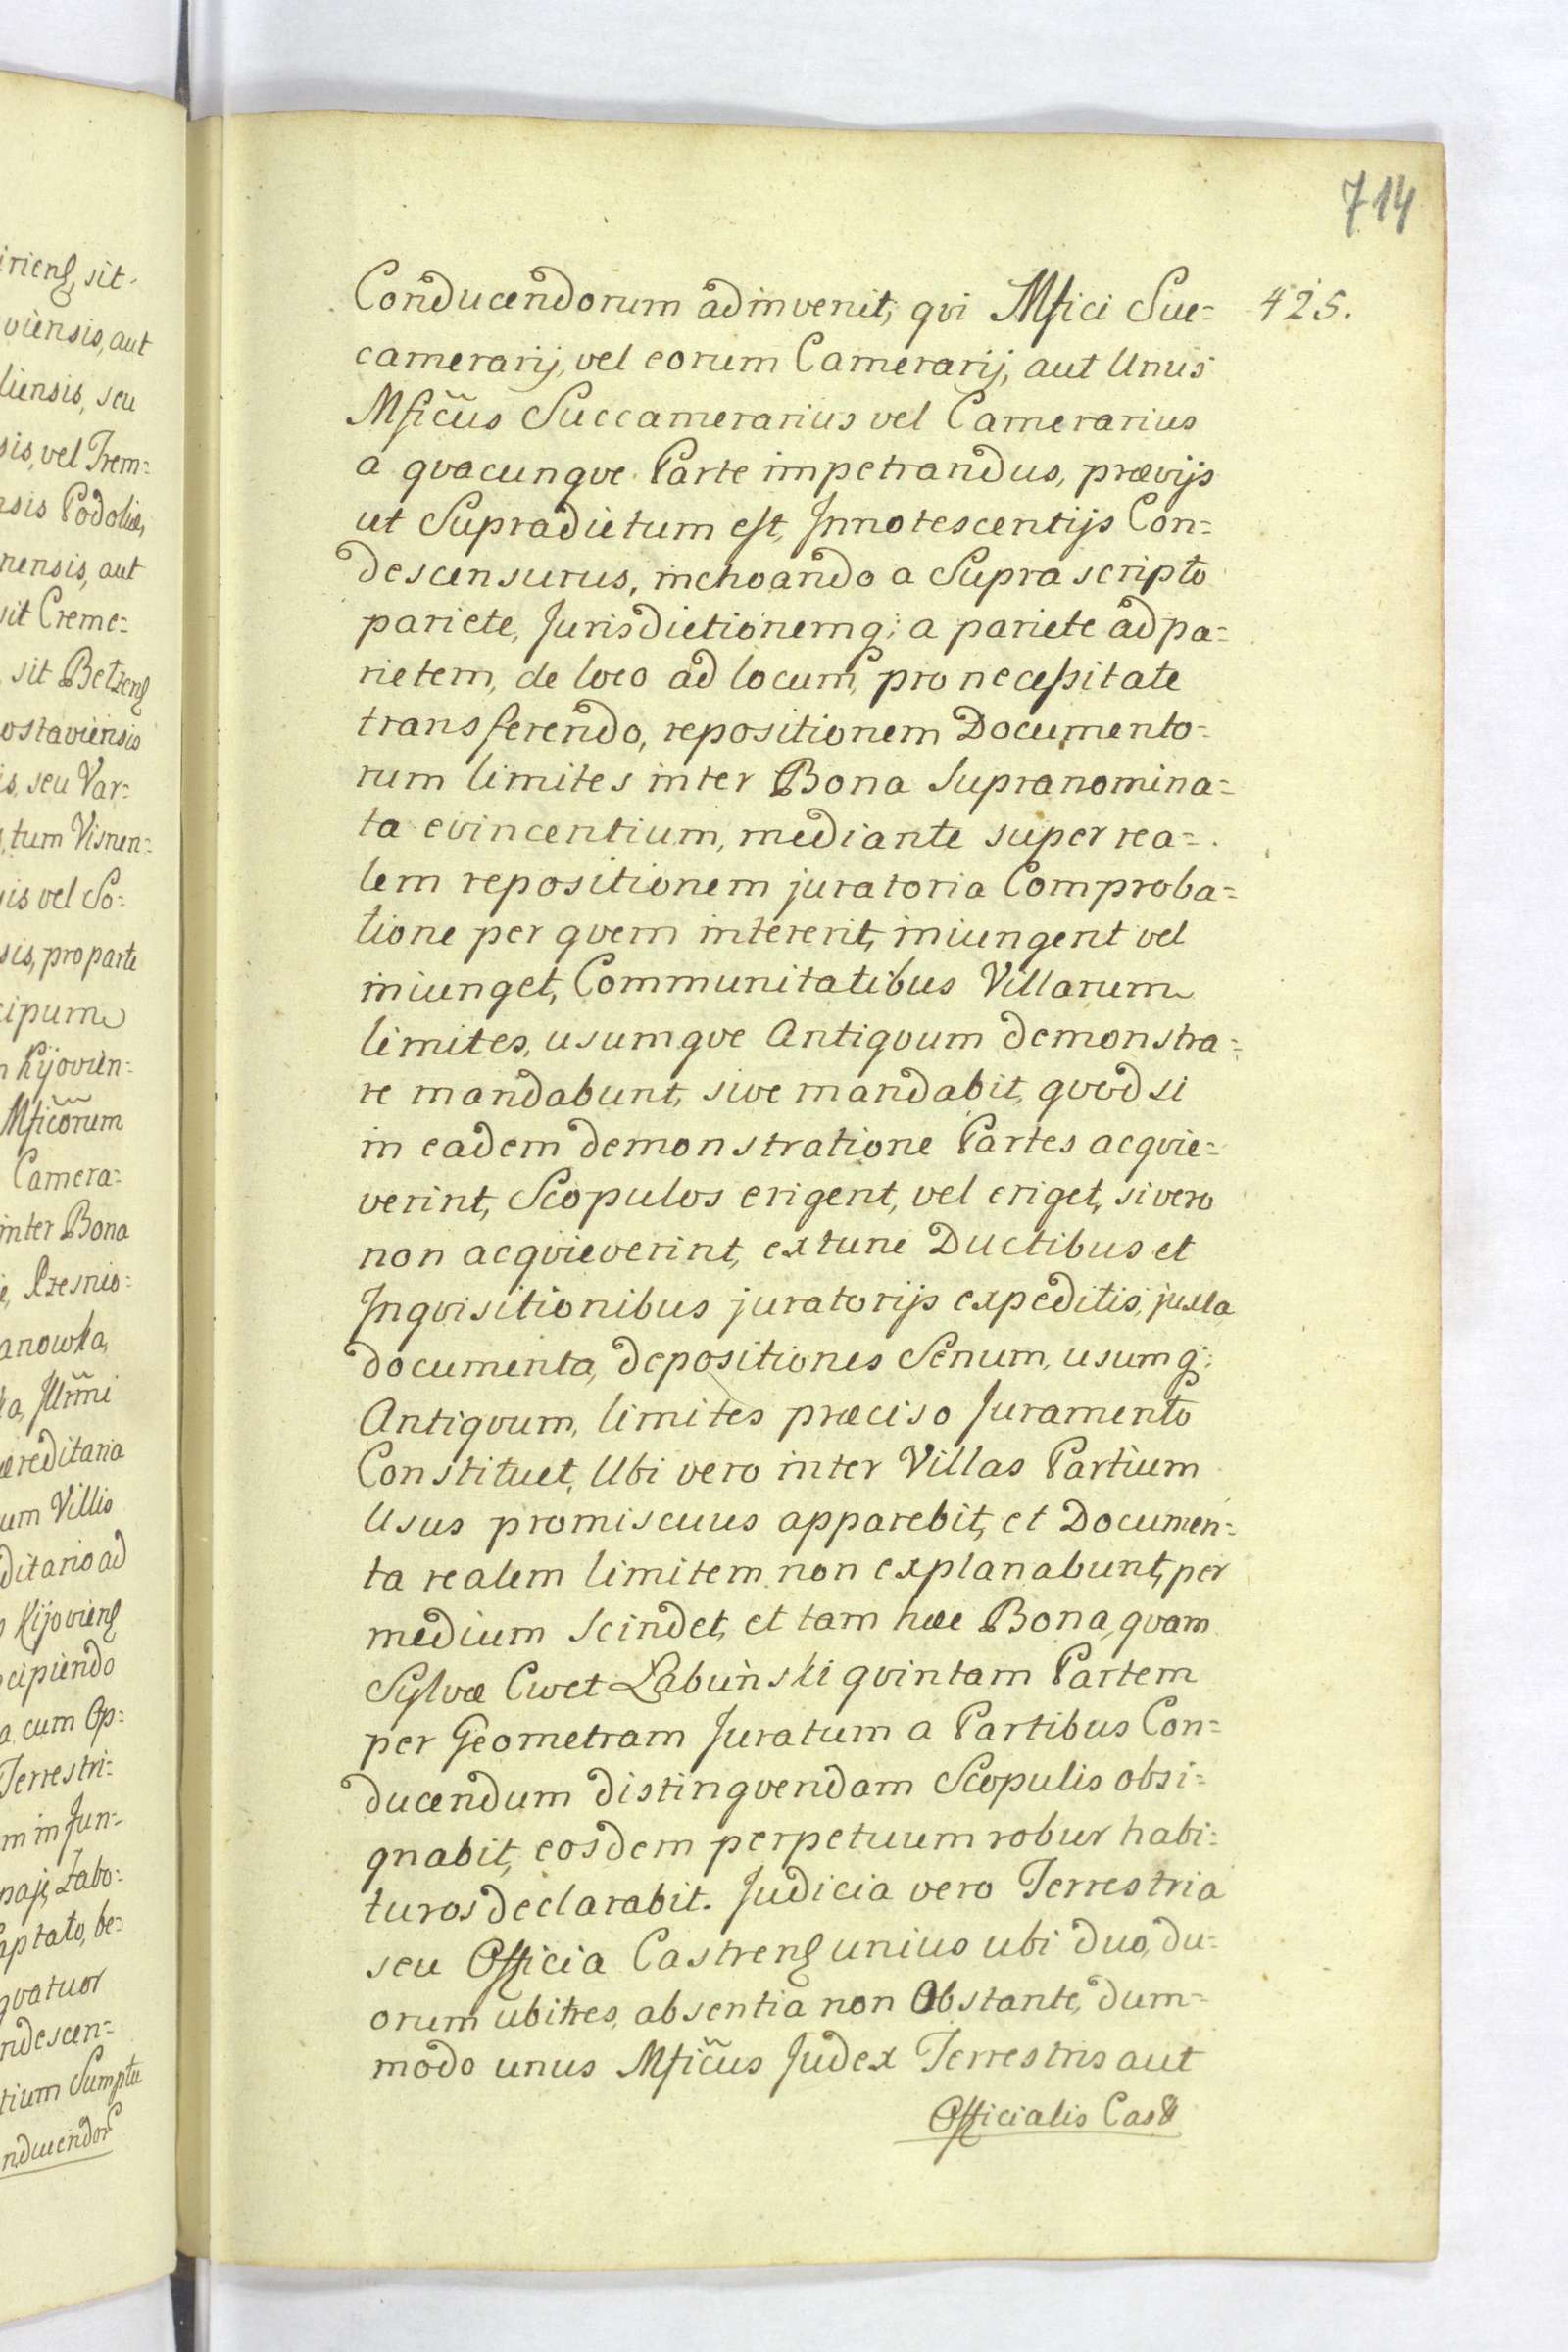 714
425.
Conducendorum adinvenit, qvi Mfici Suc=
camerarij, vel eorum Camerarij, aut Unus
Mficus Succamerarius vel Camerarius
a qvacunqve Parte impetrandus, prævijs
ut Supradictum est, Innotescentijs Con=
descensurus, inchoando a Supra scripto
pariete, Jurisdictionemq; a pariete ad pa=
rietem, de loco ad locum, pro necessitate
transferendo, repositionem Documento=
rum limites inter Bona Supranomina=
ta evincentium, mediante super rea=
lem repositionem juratoria Comproba=
tione per qvem intererit, iniungent vel
iniunget, Communitatibus Villarum
limites, usumqve Antiqvum demonstra=
re mandabunt, sive mandabit, qvod si
in eadem demonstratione Partes acqvie=
verint, Scopulos erigent, vel eriget, si vero
non acqvieverint, extunc Ductibus et
Inqvisitionibus juratorijs expeditis, juxta
documenta, depositiones Senum, usumq;
Antiqvum, limites præciso Juramento
Constituet, Ubi vero inter Villas Partium
Usus promiscuus apparebit, et Documen=
ta realem limitem non explanabunt, per
medium scindet, et tam hæc Bona, qvam
Sylvæ Cwet Łabuński qvintam Partem
per Geometram Juratum a Partibus Con=
ducendum distingvendam Scopulis obsi=
gnabit, eosdem perpetuum robur habi=
turos declarabit. Judicia vero Terrestria
seu Officia Castrens unius ubi duo, du=
orum ubi tres, absentia non Obstante, dum=
modo unus Mficus Judex Terrestris aut
Officialis Cast
iriens, sit
viensis, aut
liensis, seu
sis, vel Trem=
nsis Podoliæ,
nensis, aut
sit Creme=
sit Betzens
ostaviensis
is, seu Var=
tum Visnen=
is vel So=
sis, pro parte
cipum
Kijovien=
Mficorum
Camera=
inter Bona
anowka,
a, Illrmi
æreditaria
um Villis
ditario ad
Kijoviens
cipiendo
a cum Op=
Terrestri=
m in Jun=
ptato, be=
qvatuor
ndescen=
tium Sumptu
nducendor